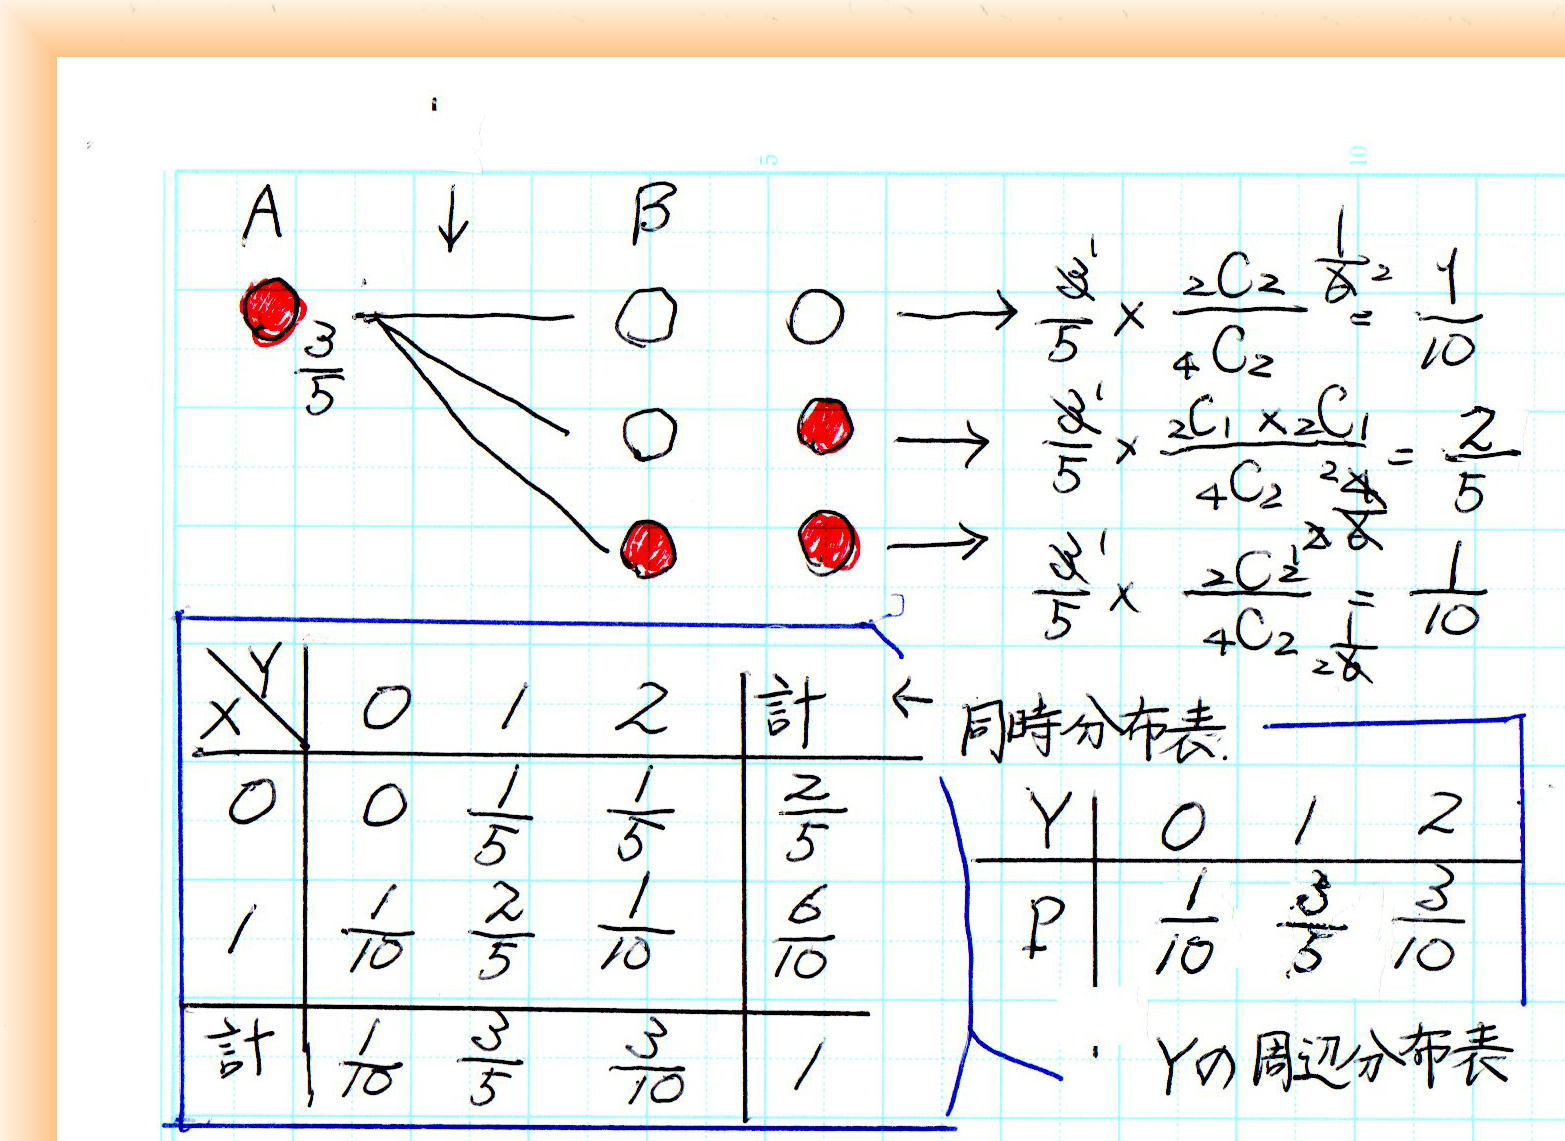 5 10
A ↓ B
3/5
→ 3/5 × ₂C₂/₄C₂ = 1/10
1/6 2
→ 3/5 × ₂C₁ × ₂C₁/₄C₂ = 2/5
→ 3/5 × ₂C₂/₄C₂ = 1/10
X\Y 0 1 2 計
0 0 1/5 1/5 2/5
1 1/10 2/5 1/10 6/10
計 1/10 3/5 3/10 1
← 同時分布表.
Y 0 1 2
P 1/10 3/5 3/10
Yの周辺分布表